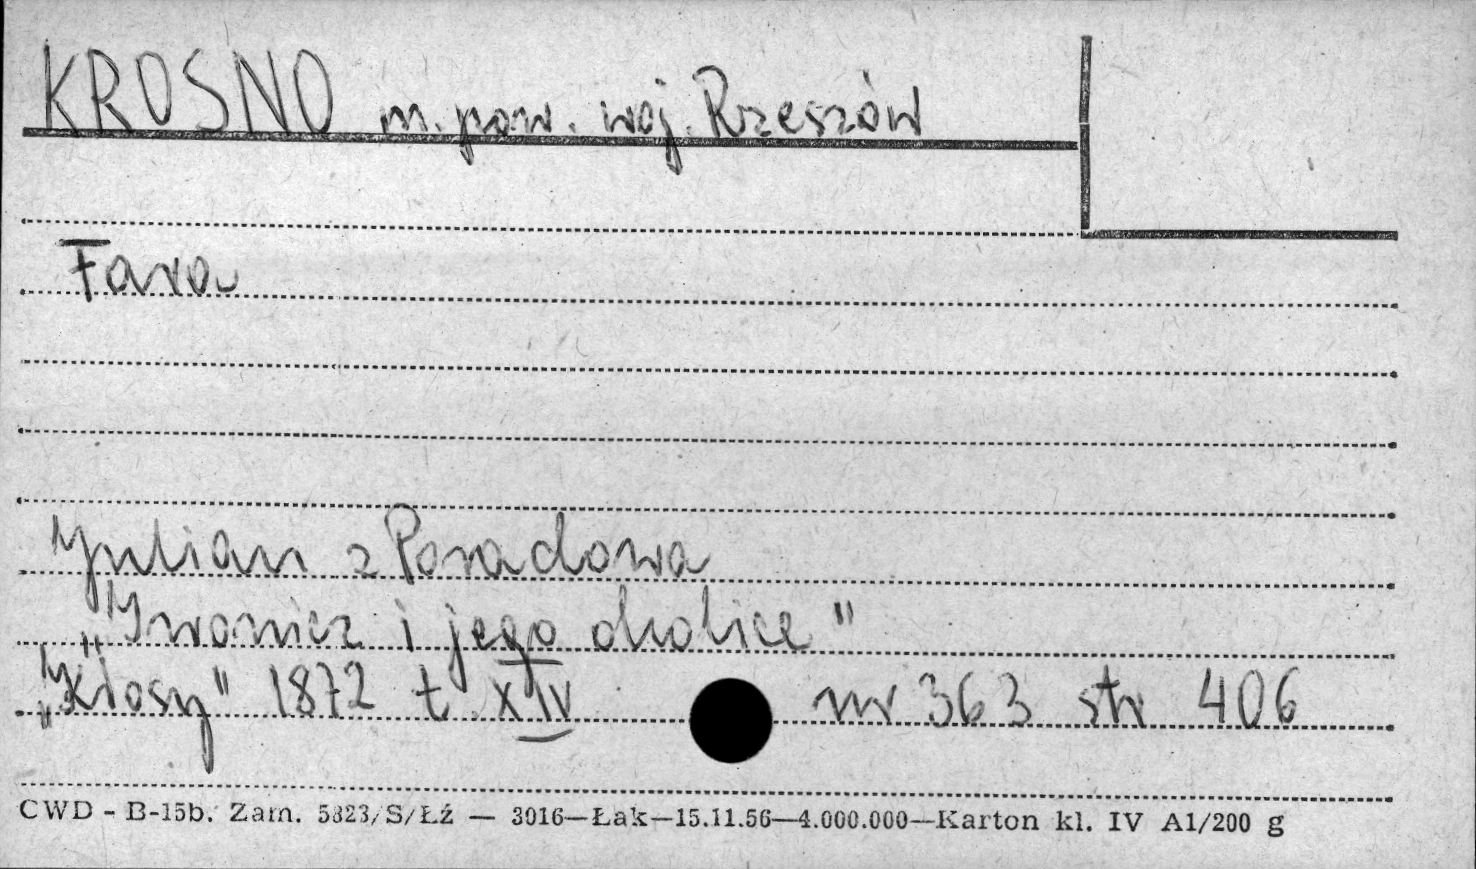 KROSNO m. pow. woj. Rzeszów
Fara
Julian z Poradowa
„Iwonicz i jego okolice"
„Kłosy" 1872 t. XIV nr 363 str 406
CWD - B-15b. Zam. 5823/S/Łź — 3016—Łak—15.11.56—4.000.000—Karton kl. IV A1/200 g